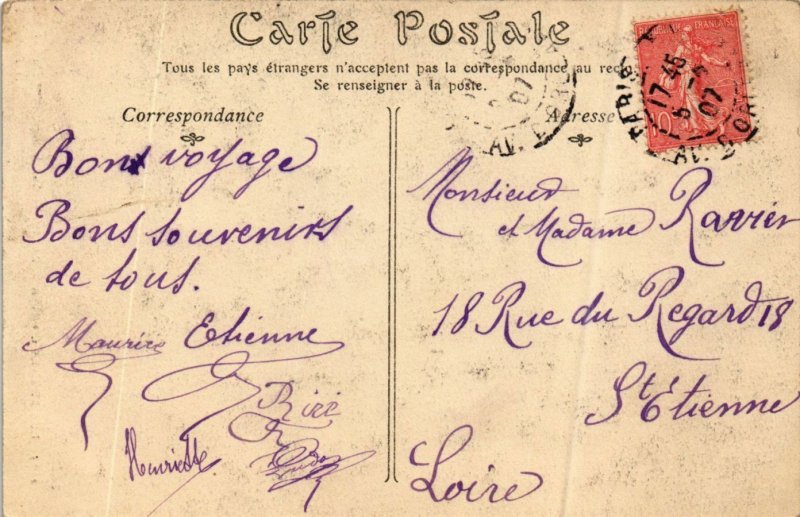 Carte Postale
Tous les pays étrangers n'acceptent pas la correspondance au recto
Se renseigner à la poste.
Correspondance
Adresse
RÉPUBLIQUE FRANÇAISE
10
PARIS
17 45
6 -5
07
AV. D'ORL
07
AV. D'ORL
Bons voyage
Bons souvenirs
de tous.
Maurice Etienne
Henriette
Monsieur
et Madame Ravier
18 Rue du Regard 18
St Étienne
Loire